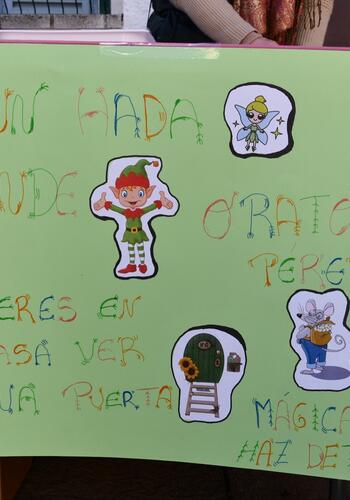 UN HADA
NDE
O RATO
PÉRE
ERES EN
ASA VER
UA PUERTA
MÁGICA
HAZ DE